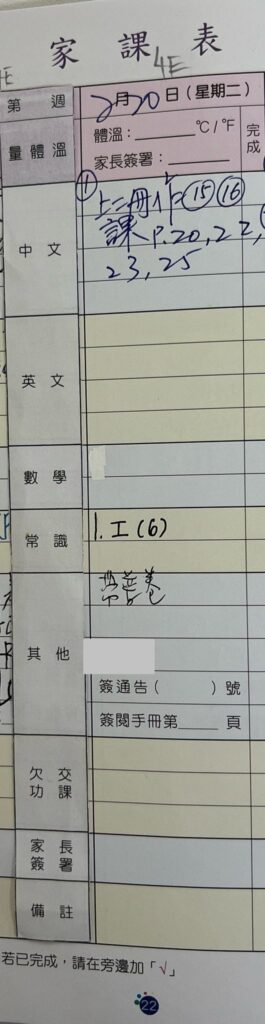 家課表
4E
第 週 2月20日(星期二)
量體溫 體溫:______℃/℉ 完成
家長簽署:______
中文 ① 上二冊作⑮⑯
課 P.20,22,
23,25
英文
數學
常識 1. 工(6)
其他
簽通告( )號
簽閱手冊第____頁
欠交功課
家長簽署
備註
若已完成,請在旁邊加「√」
22